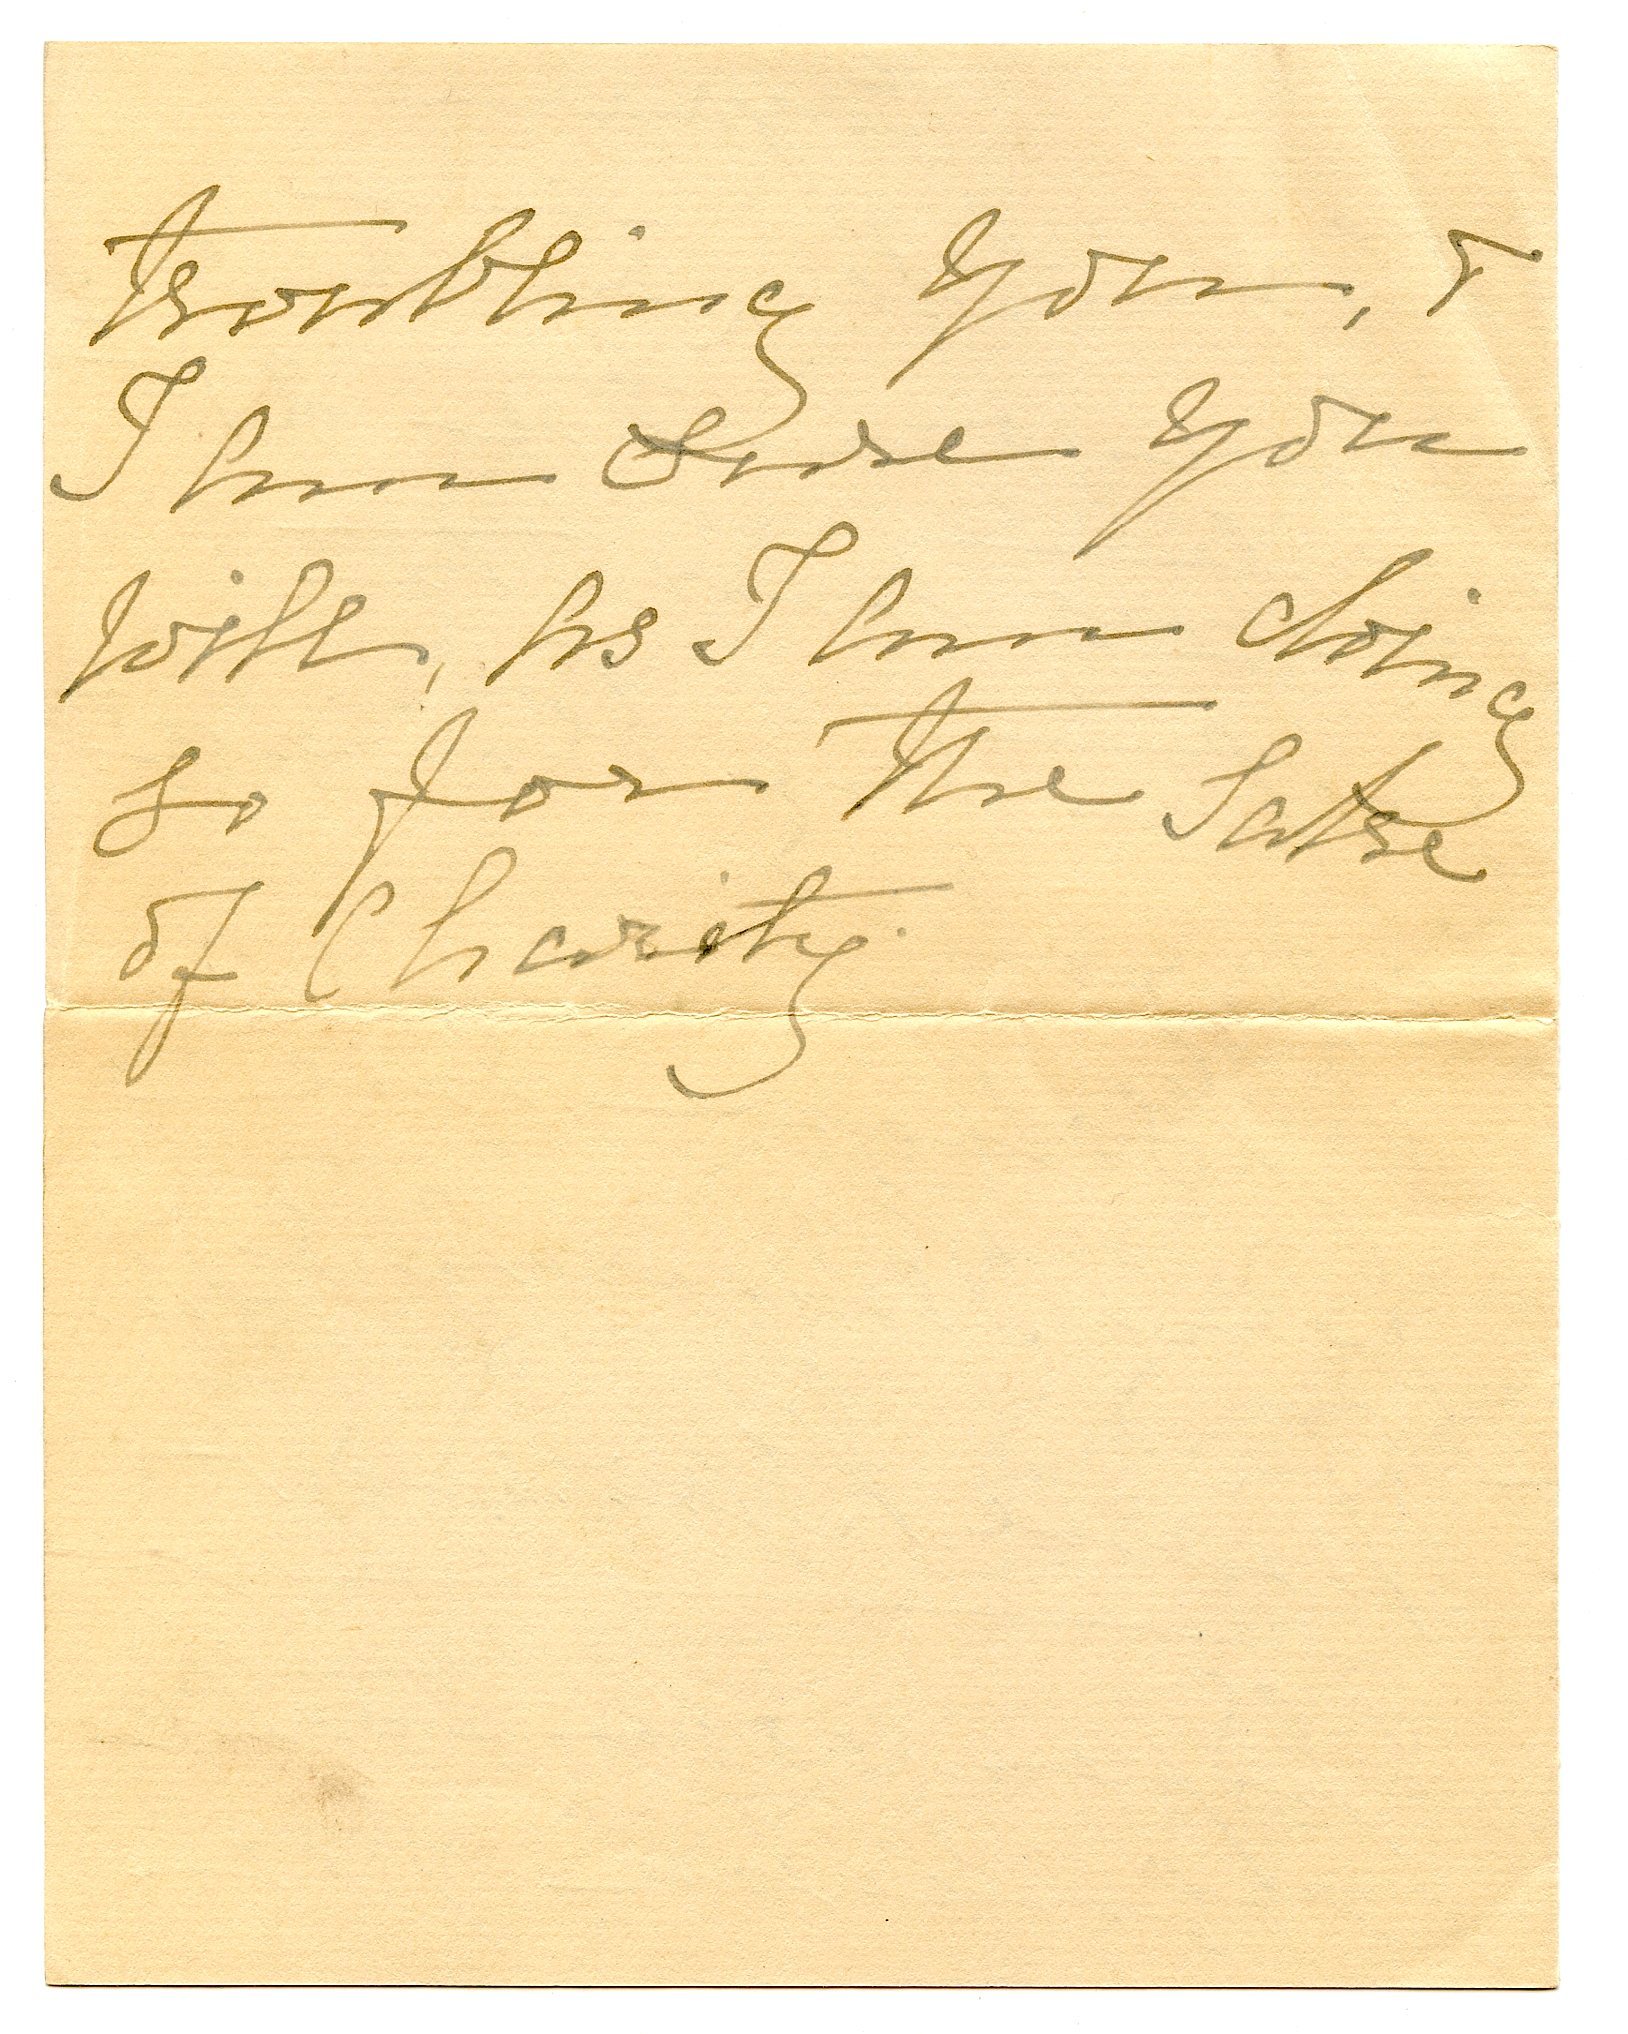 troubling you, &
I am sure you
will, as I am doing
so for the Sake
of Charity.